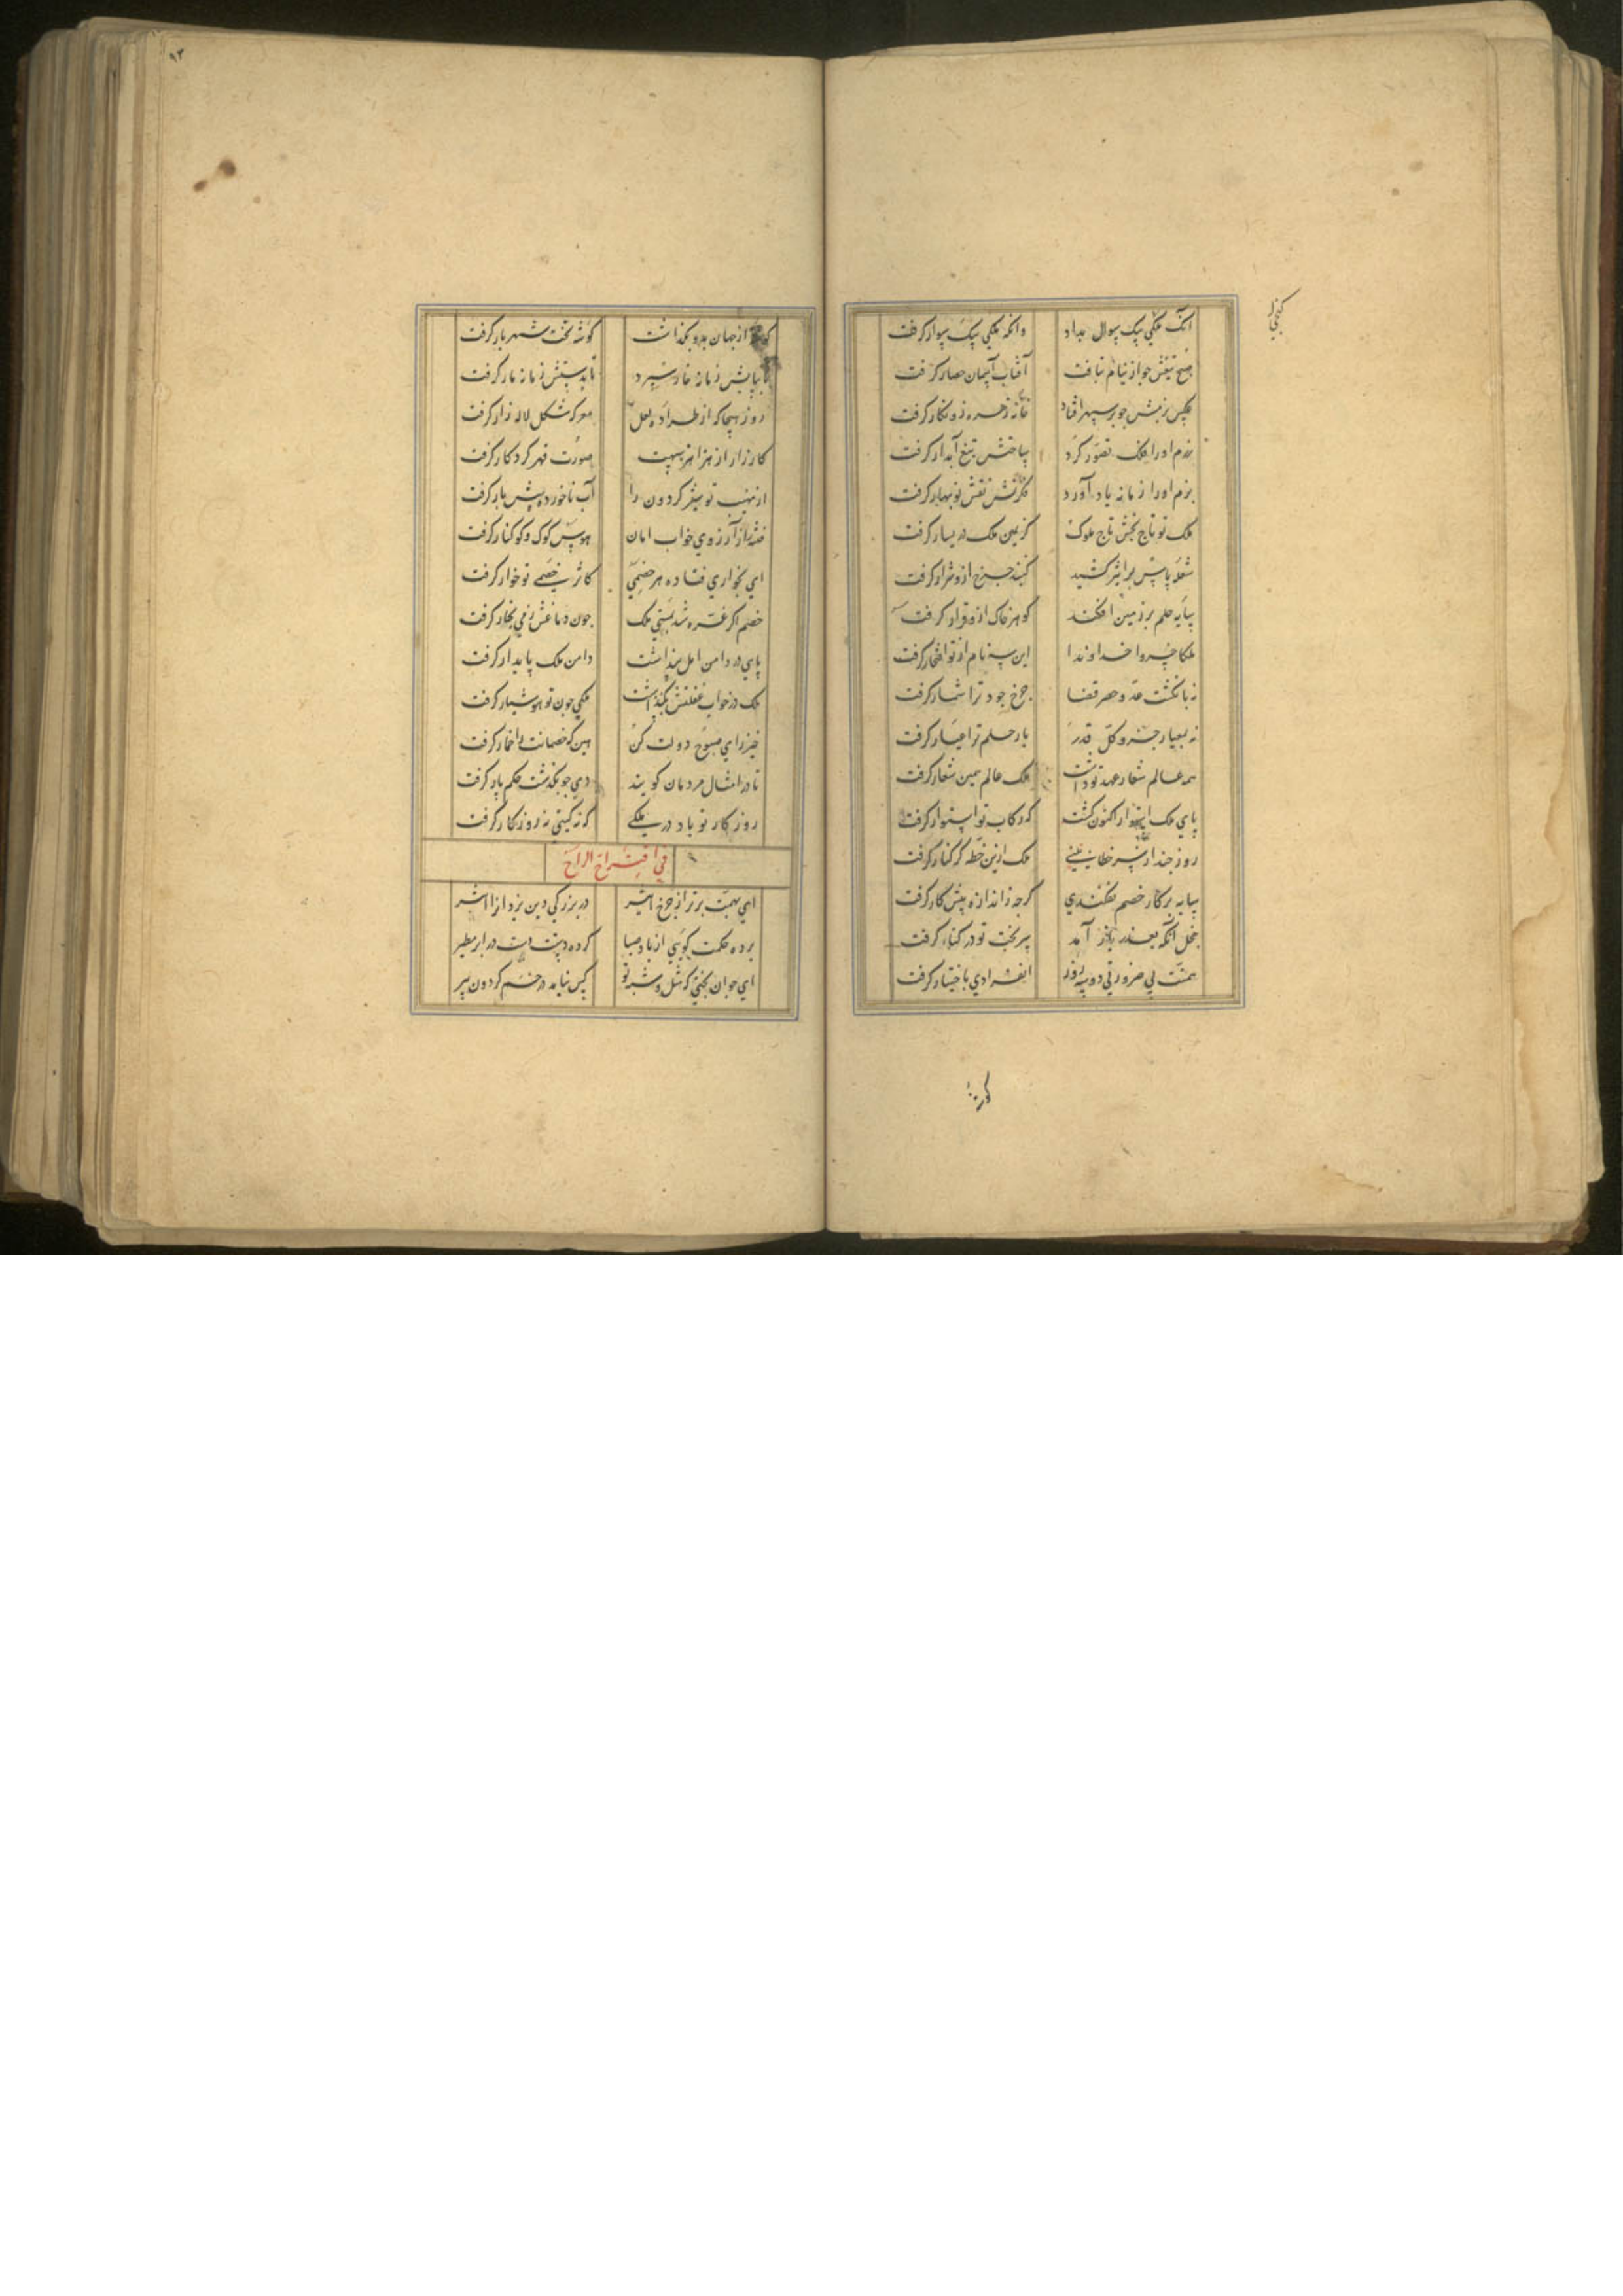 آنک ملکی بیک سوال بداد وانکه ملکی بیک سوار کرفت
صبح تیغش جو از نیام بتافت آفتاب آسمان حصار کرفت
عکس بزمش جو بر سپهر افتاد خانه زهره زو نکار کرفت
رزم اورا فلک تصور کرد ساحتش تیغ آبدار کرفت
بزم اورا زمانه یاد آورد فکرتش نقش نوبهار کرفت
ملک تو تاج بخش تاج ملوک کز یمین ملک در یسار کرفت
شعله باسش بر اثیر کشید کنبد جرخ ازو شرار کرفت
سایه حلم بر زمین افکند کوهر خاک ازو قرار کرفت
ملکا خسروا خداوندا این سه نام از تو افتخار کرفت
نه بانکشت عد و حصر قضا جرخ جود ترا شمار کرفت
نه بمعیار جزو و کل قدر بار حلم ترا عیار کرفت
همه عالم شعار عهد تو داشت ملک عالم همین شعار کرفت
پای ملک استوار اکنون کشت که رکاب تو استوار کرفت
روز جند از سر خطا بینی ملک ازین خطه کر کنار کرفت
سایه بر کار خصم نفکندی کرجه ز اندازه بیش کار کرفت
خجل آنکه بعذر باز آمد سر بخت تو در کنار کرفت
همتت بی ضرورتی دو سه روز انفرادی باختیار کرفت
از جهان بدو بکذاشت کوشه تخت شهریار کرفت
تا بپایش زمانه خار سپرد تا بدستش زمانه مار کرفت
روز هیجا که از طراده لعل معرکه شکل لاله زار کرفت
کارزار از هزاهز سپهت صورت قهر کردکار کرفت
از نهیب تو شیر کردون را آب ناخورده پیش بار کرفت
فتنه را از آرزوی خواب امان هوس کوک و کوکنار کرفت
ای بخواری فتاده هر خصمی کاثر خصمی تو خوار کرفت
خصم اکر غره شد بمستی ملک جون دماغش ز می بخار کرفت
پای در دامن امل بنداشت دامن ملک پایدار کرفت
ملک در خواب غفلتش بکذاشت ملکی جون تو هوشیار کرفت
خیز رای صبوح دولت کن هین که خصمانت را خمار کرفت
تا در امثال مردمان کویند دی جو بکذشت حکم پار کرفت
روزکار تو باد در ملکی که نه کیتی نه روزکار کرفت
فی اقتراح الراح
ای بهمت برتر از جرخ اثیر در بزرکی دین یزدان را اثیر
برده حکمت کوی از باد صبا کرده دستت دست در ابر مطیر
ای جوان بختی که مثل و شبه تو کس نیابد در خم کردون پیر